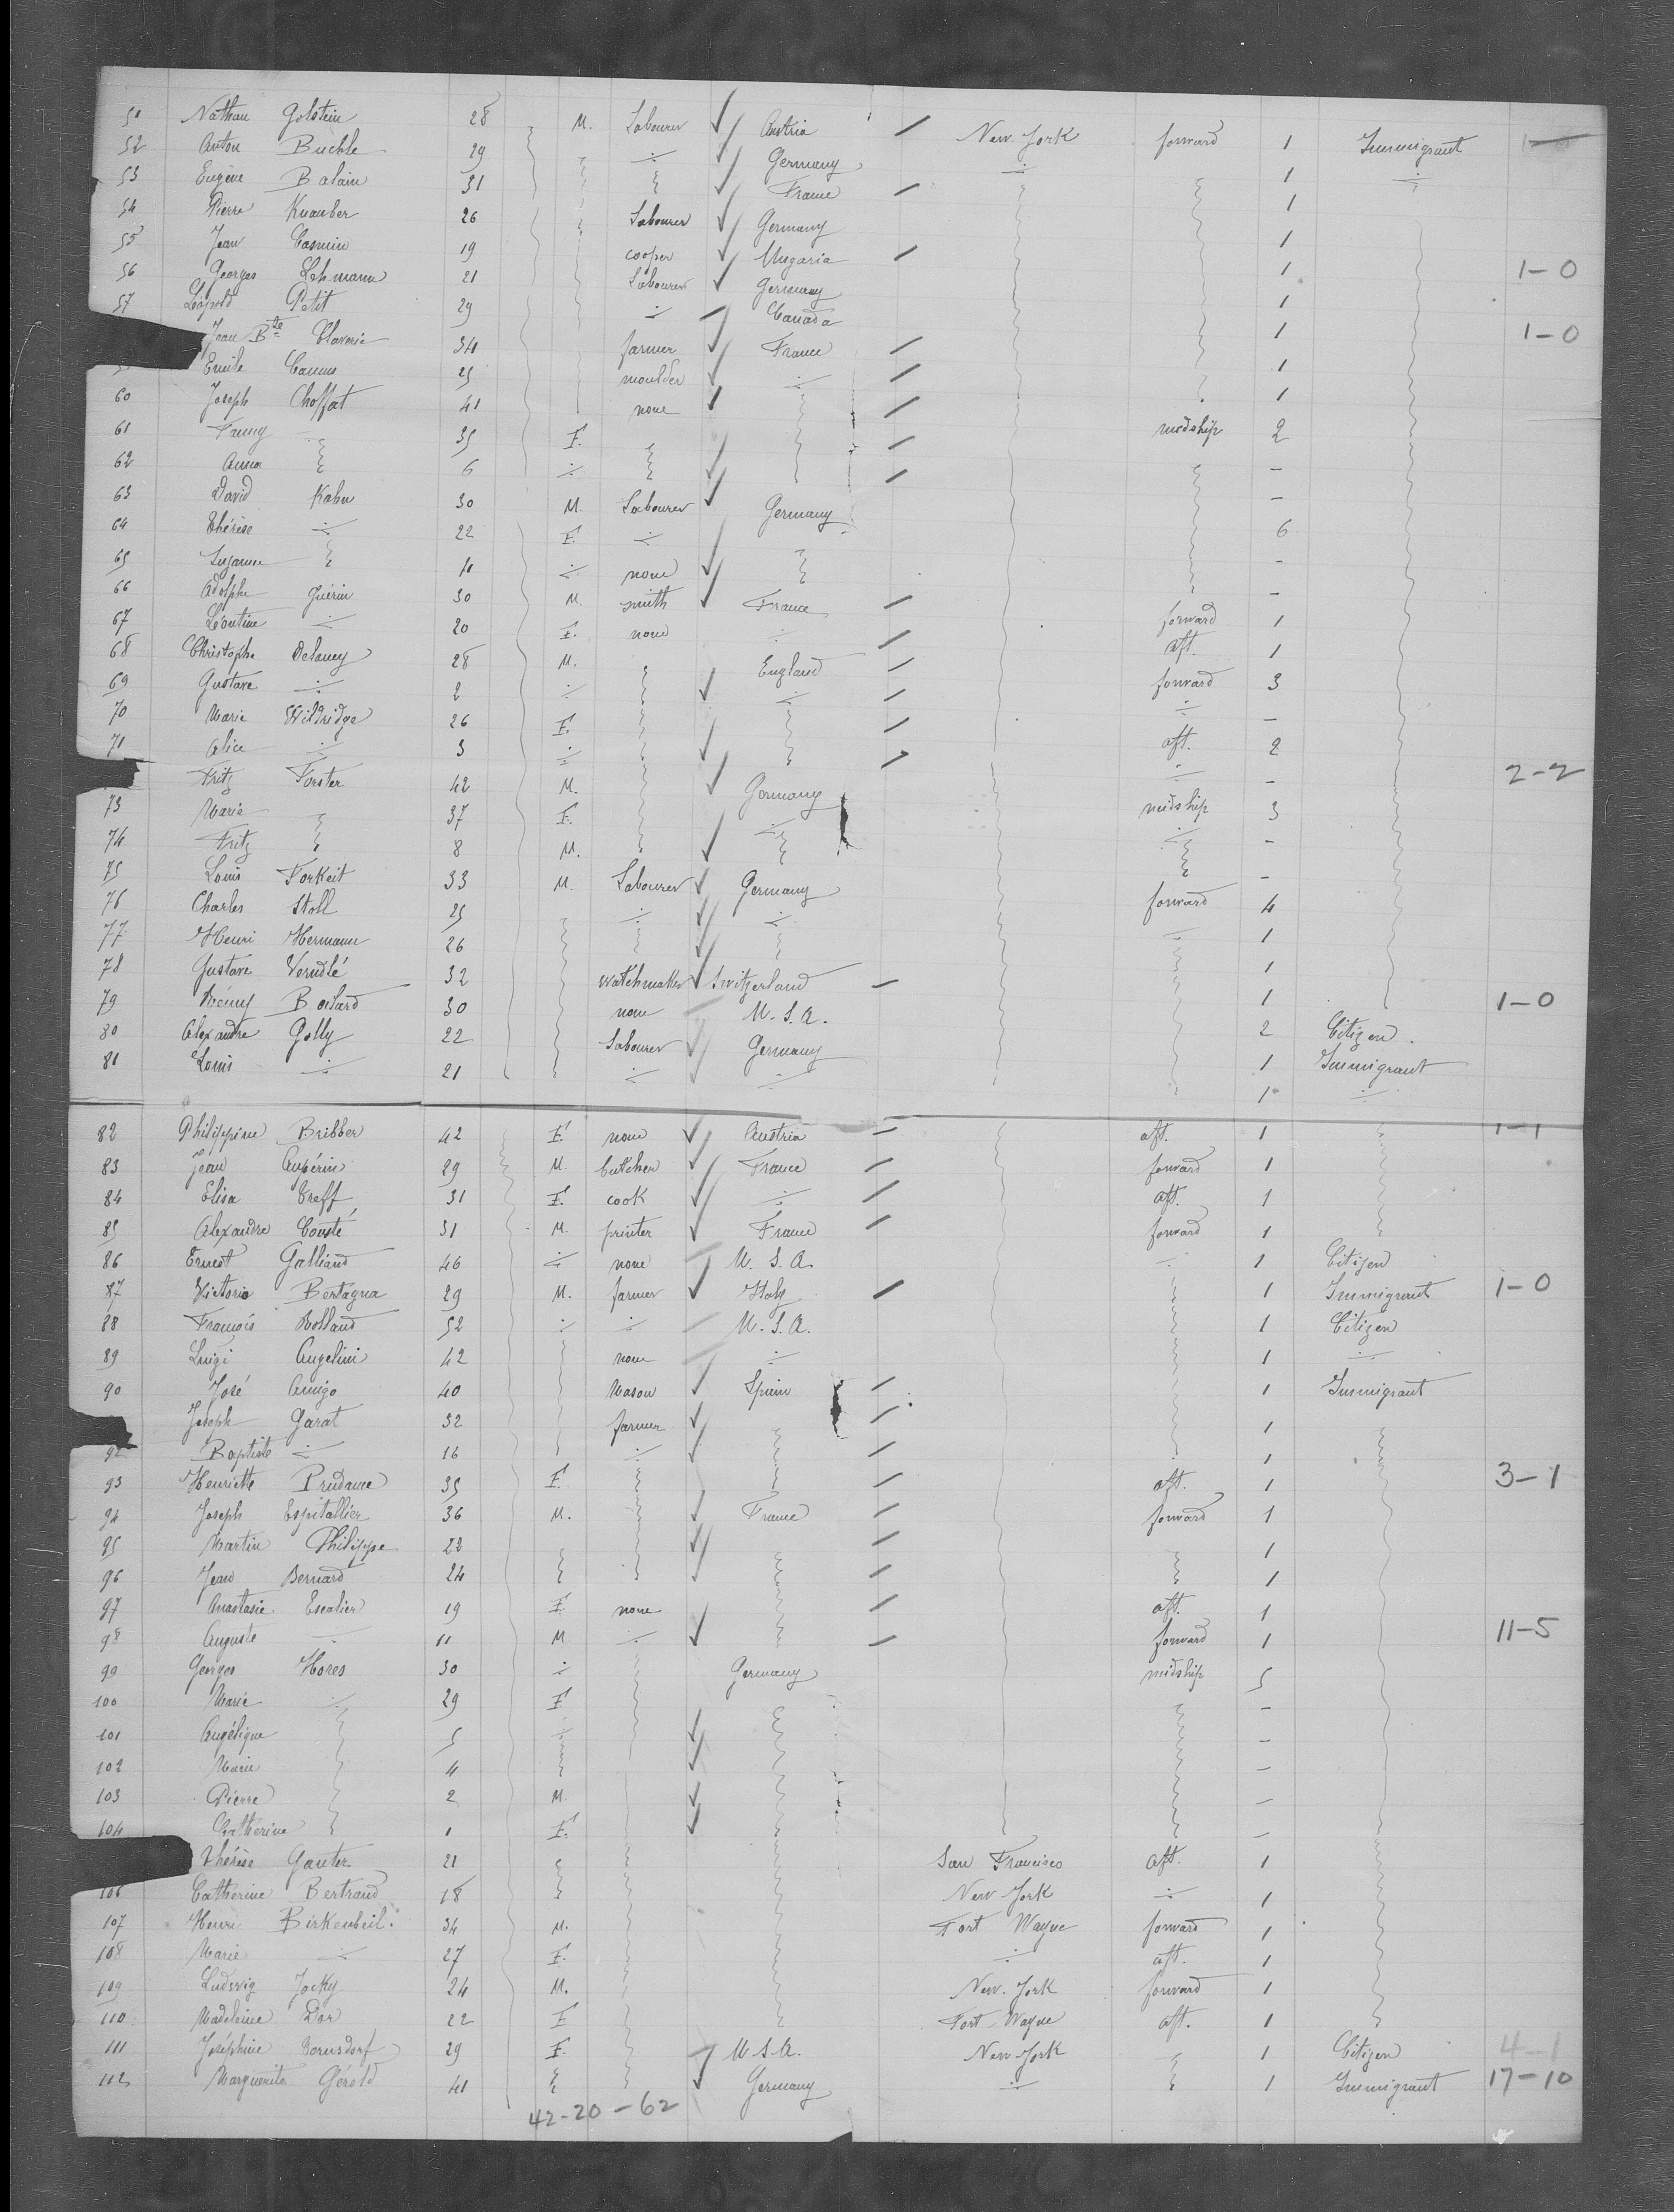 51 Nathan Golstein 28 M. Labourer Austria New York forward 1 Immigrant
52 Anton Buchle 29 ÷ Germany ÷ 1 ÷
53 Eugène Balain 31 France 1
54 Pierre Knauber 26 Labourer Germany 1
55 Jean Casmin 19 cooper Ungaria 1 1-0
56 Georges Lehmann 21 Labourer Germany 1
57 Léopold Petit 29 ÷ Canada 1 1-0
Jean Bte Claverie 34 farmer France 1
Emile Camus 25 moulder ÷ 1
60 Joseph Choffat 41 none midship 2
61 Fanny ÷ 35 F. -
62 Anna 6 ÷ -
63 David Kahn 30 M. Labourer Germany 6
64 Thérèse ÷ 22 F. ÷ -
65 Suzanne 11 ÷ none -
66 Adolphe Guérin 30 M. smith France forward 1
67 Léontine ÷ 20 F. none ÷ aft. 1
68 Christophe Delancy 28 M. England forward 3
69 Gustave ÷ 2 ÷ ÷ ÷ -
70 Marie Wildridge 26 F. aft. 2
71 Alice ÷ 3 ÷ ÷ - 2-2
Fritz Forster 42 M. Germany midship 3
73 Marie 37 F. ÷ ÷ -
74 Fritz 8 M. -
75 Louis Forkeit 33 M. Labourer Germany forward 4
76 Charles Stoll 25 ÷ ÷ ÷ 1
77 Henri Hermann 26 1
78 Gustave Verudlé 32 watchmaker Switzerland 1 1-0
79 Rémy Boilard 30 none U.S.A. 2 Citizen.
80 Alexandre Golly 22 Labourer Germany 1 Immigrant
81 Louis ÷ 21 ÷ ÷ 1 ÷
82 Philippine Bribber 42 F. none Austria aft. 1 1-1
83 Jean Aupérin 29 M. butcher France forward 1
84 Elisa Treff 31 F. cook ÷ aft. 1
85 Alexandre Cousté 31 M. printer France forward 1
86 Ernest Galliand 46 ÷ none U.S.A. ÷ 1 Citizen
87 Victorio Bertagna 29 M. farmer Italy 1 Immigrant 1-0
88 François Rolland 52 ÷ ÷ U.S.A. 1 Citizen
89 Luigi Angelini 42 none ÷ 1 ÷
90 José Amigo 40 Mason Spain 1 Immigrant
Joseph Garat 32 farmer 1
92 Baptiste ÷ 16 ÷ 1
93 Henriette Prudance 35 F. aft. 1 3-1
94 Joseph Espitallier 36 M. France forward 1
95 Martin Philippe 22 1
96 Jean Bernard 24 1
97 Anastasie Escalier 19 F. none aft. 1
98 Auguste ÷ 11 M. ÷ forward 1 11-5
99 Georges Hores 30 ÷ Germany midship 5
100 Marie ÷ 29 F. -
101 Angélique 5 ÷ -
102 Marie 4 -
103 Pierre 2 M. -
104 Catherine 1 F. -
Thérèse Ganter 21 San Francisco aft. 1
106 Catherine Bertrand 18 New York ÷ 1
107 Henri Birkenbeil. 34 M. Fort Wayne forward 1
108 Marie ÷ 27 F. ÷ aft. 1
109 Ludswig Jocky 24 M. New York forward 1
110 Madeleine Dor 22 F. Fort Wayne aft. 1
111 Joséphine 29 F. U.S.A. New York 1 Citizen 4-1
112 Marguerite Gérold 41 Germany ÷ 1 Immigrant 17-10
42-20-62